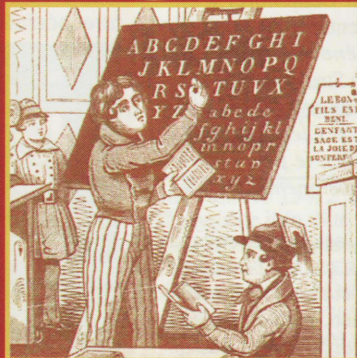 ABCDEFGHI
JKLMNOPQ
RSTUVX
YZ abcde
fghijkl
mnopr
stuv
xyz
LE BON
FILS EST
BENI.
SAGE EST
LA JOIE D